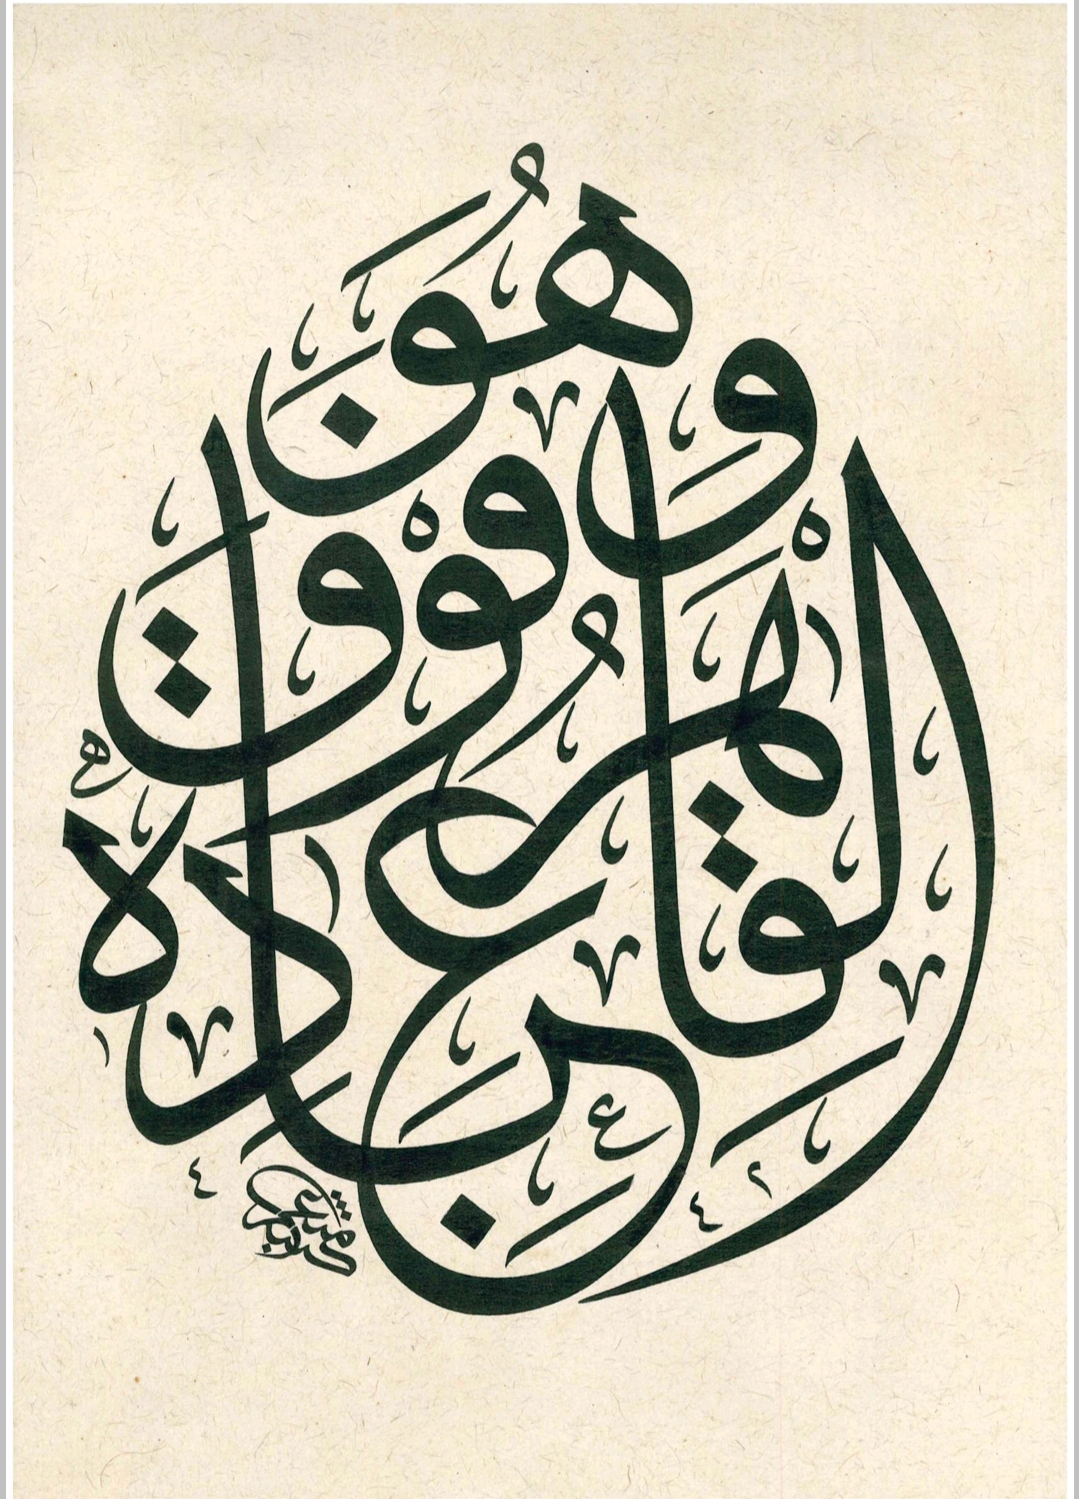 وَهُوَ الْقَاهِرُ فَوْقَ عِبَادِهِ